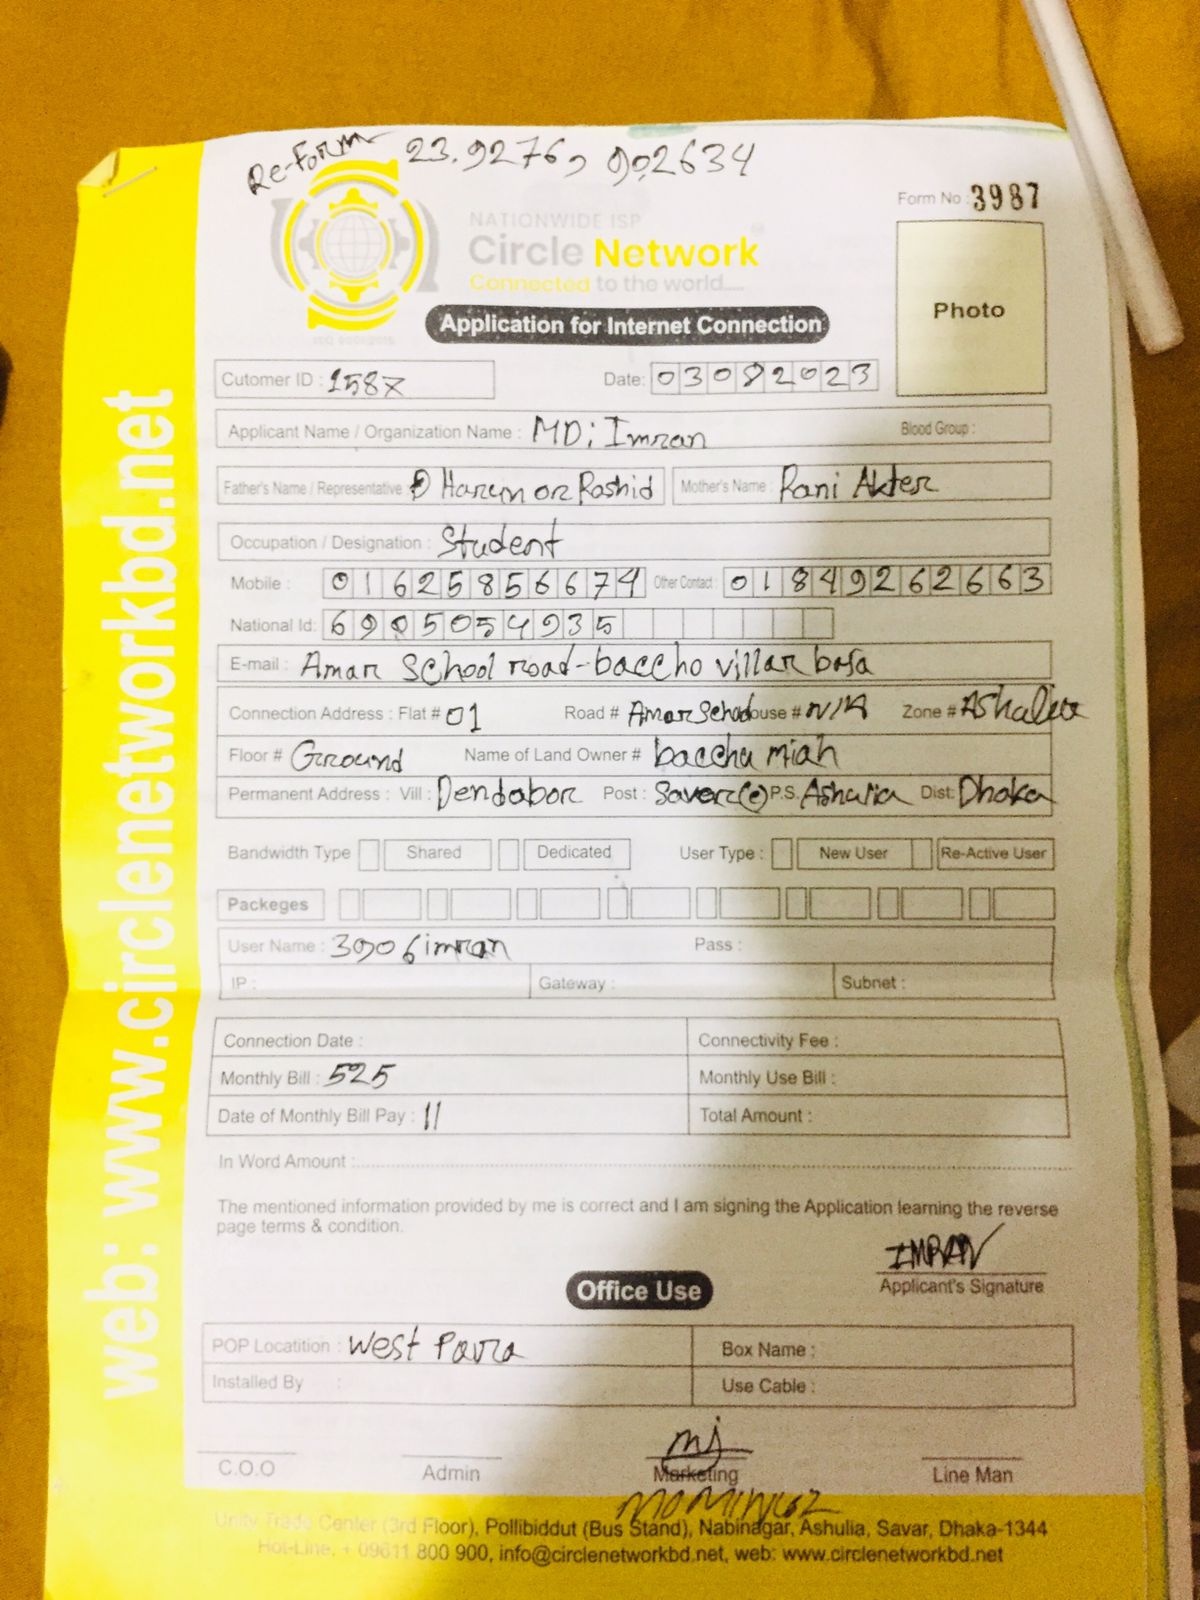 Re-Form 23.9276, 90.2634
Form No : 3987
NATIONWIDE ISP
Circle Network
Connected to the world....
Photo
Application for Internet Connection
Cutomer ID : 1587
Date: 03082023
Applicant Name / Organization Name : MD: Imran
Blood Group :
Father's Name / Representative Harun or Rashid Mother's Name : Rani Akter
Occupation / Designation : Student
Mobile : 01625856674 Other Contact : 01849262663
National Id: 6905054935
E-mail : Amar School road-baccho villar basa
Connection Address : Flat # 01 Road # Amar School House # N/A Zone # Ashulia
Floor # Ground Name of Land Owner # bacchu miah
Permanent Address : Vill : Dendabor Post : Saver P.S. Ashulia Dist: Dhaka
Bandwidth Type Shared Dedicated User Type : New User Re-Active User
Packeges
User Name : 3906imran Pass :
IP : Gateway : Subnet :
Connection Date : Connectivity Fee :
Monthly Bill : 525 Monthly Use Bill :
Date of Monthly Bill Pay : 11 Total Amount :
In Word Amount :
The mentioned information provided by me is correct and I am signing the Application learning the reverse
page terms & condition.
IMRAN
Applicant's Signature
Office Use
POP Locatition : West Para Box Name :
Installed By : Use Cable :
C.O.O Admin Marketing Line Man
Unity Trade Center (3rd Floor), Pollibiddut (Bus Stand), Nabinagar, Ashulia, Savar, Dhaka-1344
Hot-Line. + 09611 800 900, info@circlenetworkbd.net, web: www.circlenetworkbd.net
web: www.circlenetworkbd.net